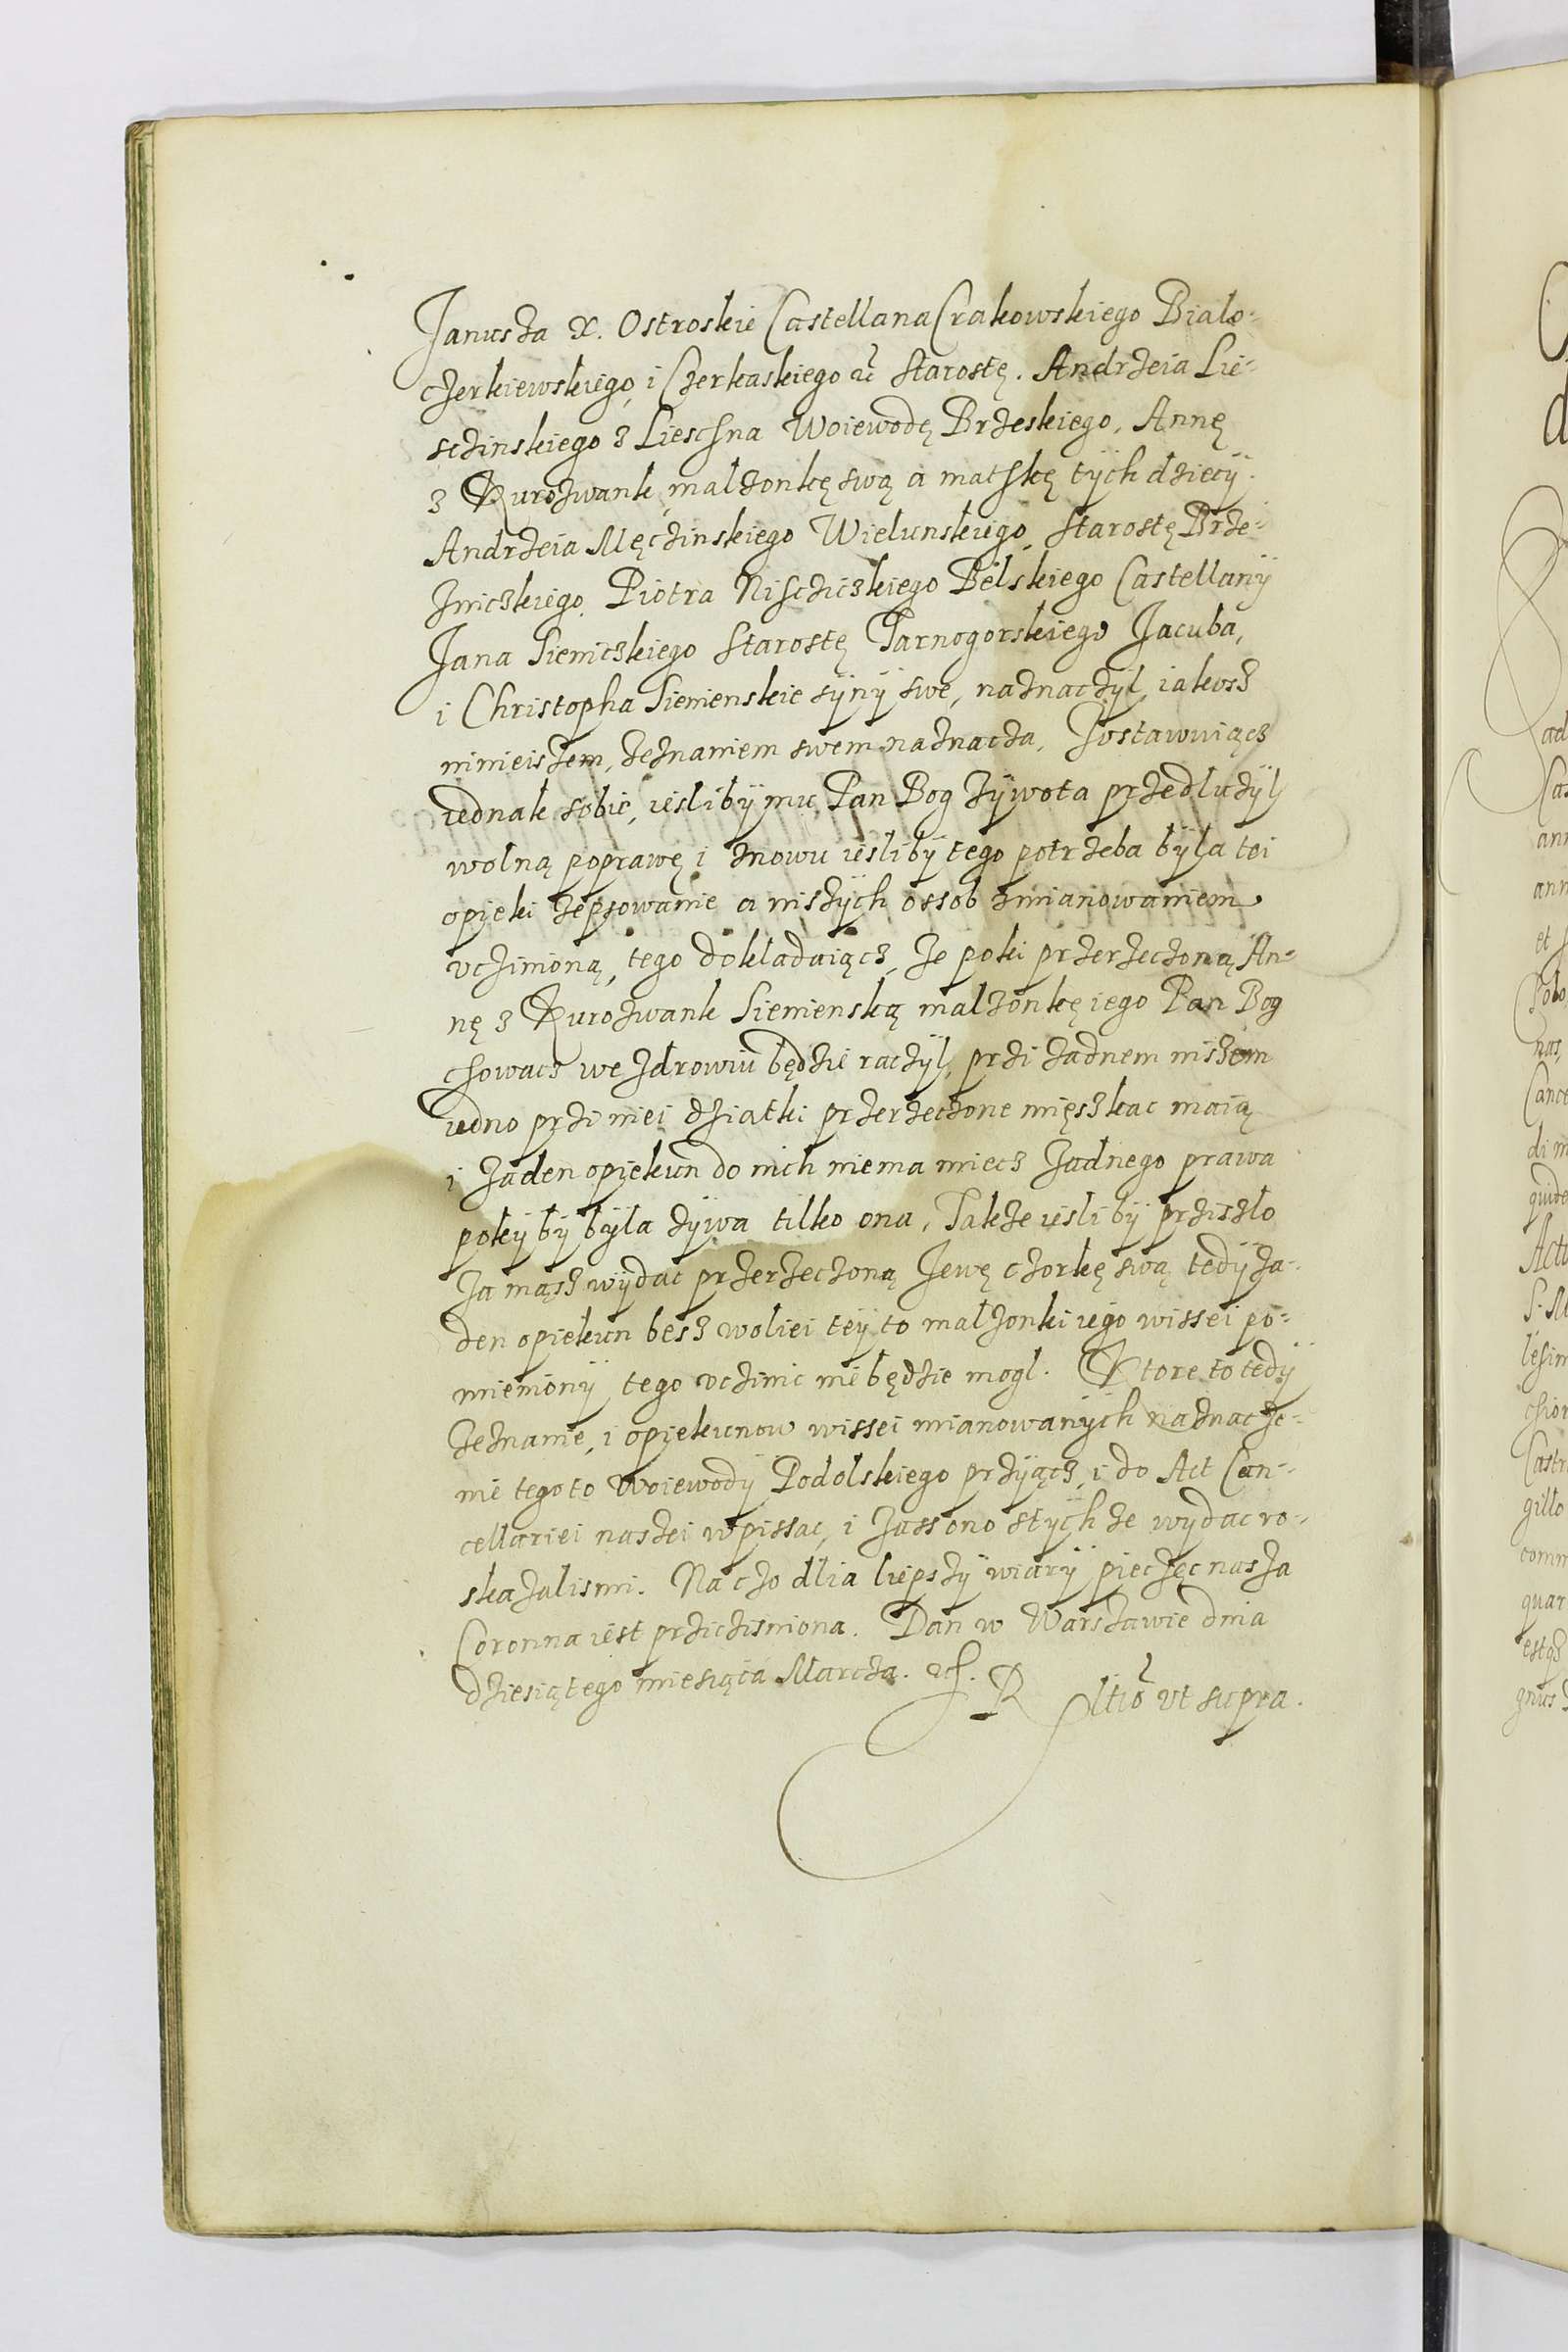 Janusza X. Ostroskie Castellana Crakowskiego Bialo-
czerkiewskiego, i Czerkaskiego etc Starostę. Andrzeia Lie-
sczinskiego z Liesczna Woiewodę Brzeskiego, Annę
z Kurozwank malzonkę swą a matkę tÿch dziecÿ.
Andrzeia Męczinskiego Wielunskiego, Starostę Brze-
zniczkiego, Piotra Nisczickiego Belskiego Castellanÿ
Jana Sieniczkiego Starostę Tarnogorskiego Jacuba,
i Christopha Sienienskie sÿnÿ swe, naznaczÿl, iakosz
ninieiszem, zeznaniem swem naznacza, Zostawuiącz
iednak sobie, iesli bÿ mu Pan Bog zÿwota przedluzÿl
wolną poprawę i znowu iesli bÿ tego potrzeba bÿla tei
opieki zepsowanie a niszÿch ossob zmianowaniem
uczinioną, tego dokladaiącz, ze poki przerzeczoną An-
nę z Kurozwank Sienienską malzonkę iego Pan Bog
chowacz we zdrowiu będzie raczÿl, przi zadnem niszem
iedno przi niei dziatki przerzeczone mięszkac maią
i zaden opiekun do nich niema miecz zadnego prawa
pokÿ bÿ bÿla zÿwa tilko ona, Takze iesli bÿ prziszlo
za mąsz wÿdac przerzeczoną Jewę czorkę swą tedÿ za-
den opiekun besz woliei tej to malzonki iego wissei po-
mienionÿ tego uczinic nie będzie mogl. Ktore to tedÿ
zeznanie, i opiekunow wissei mianowanÿch naznacze-
nie tego to Woiewodÿ Podolskiego przÿiącz, i do Act Can-
cellariei naszei wpissac, i zassono stÿch ze wÿdac ro-
skazalismi. Na czo dlia liepszÿ wiarÿ pieczęc nasza
Coronna iest prziczisniona. Dan w Warszawie dnia
dziesiątego miesiąca Marcza. etc. R ltio ut supra.